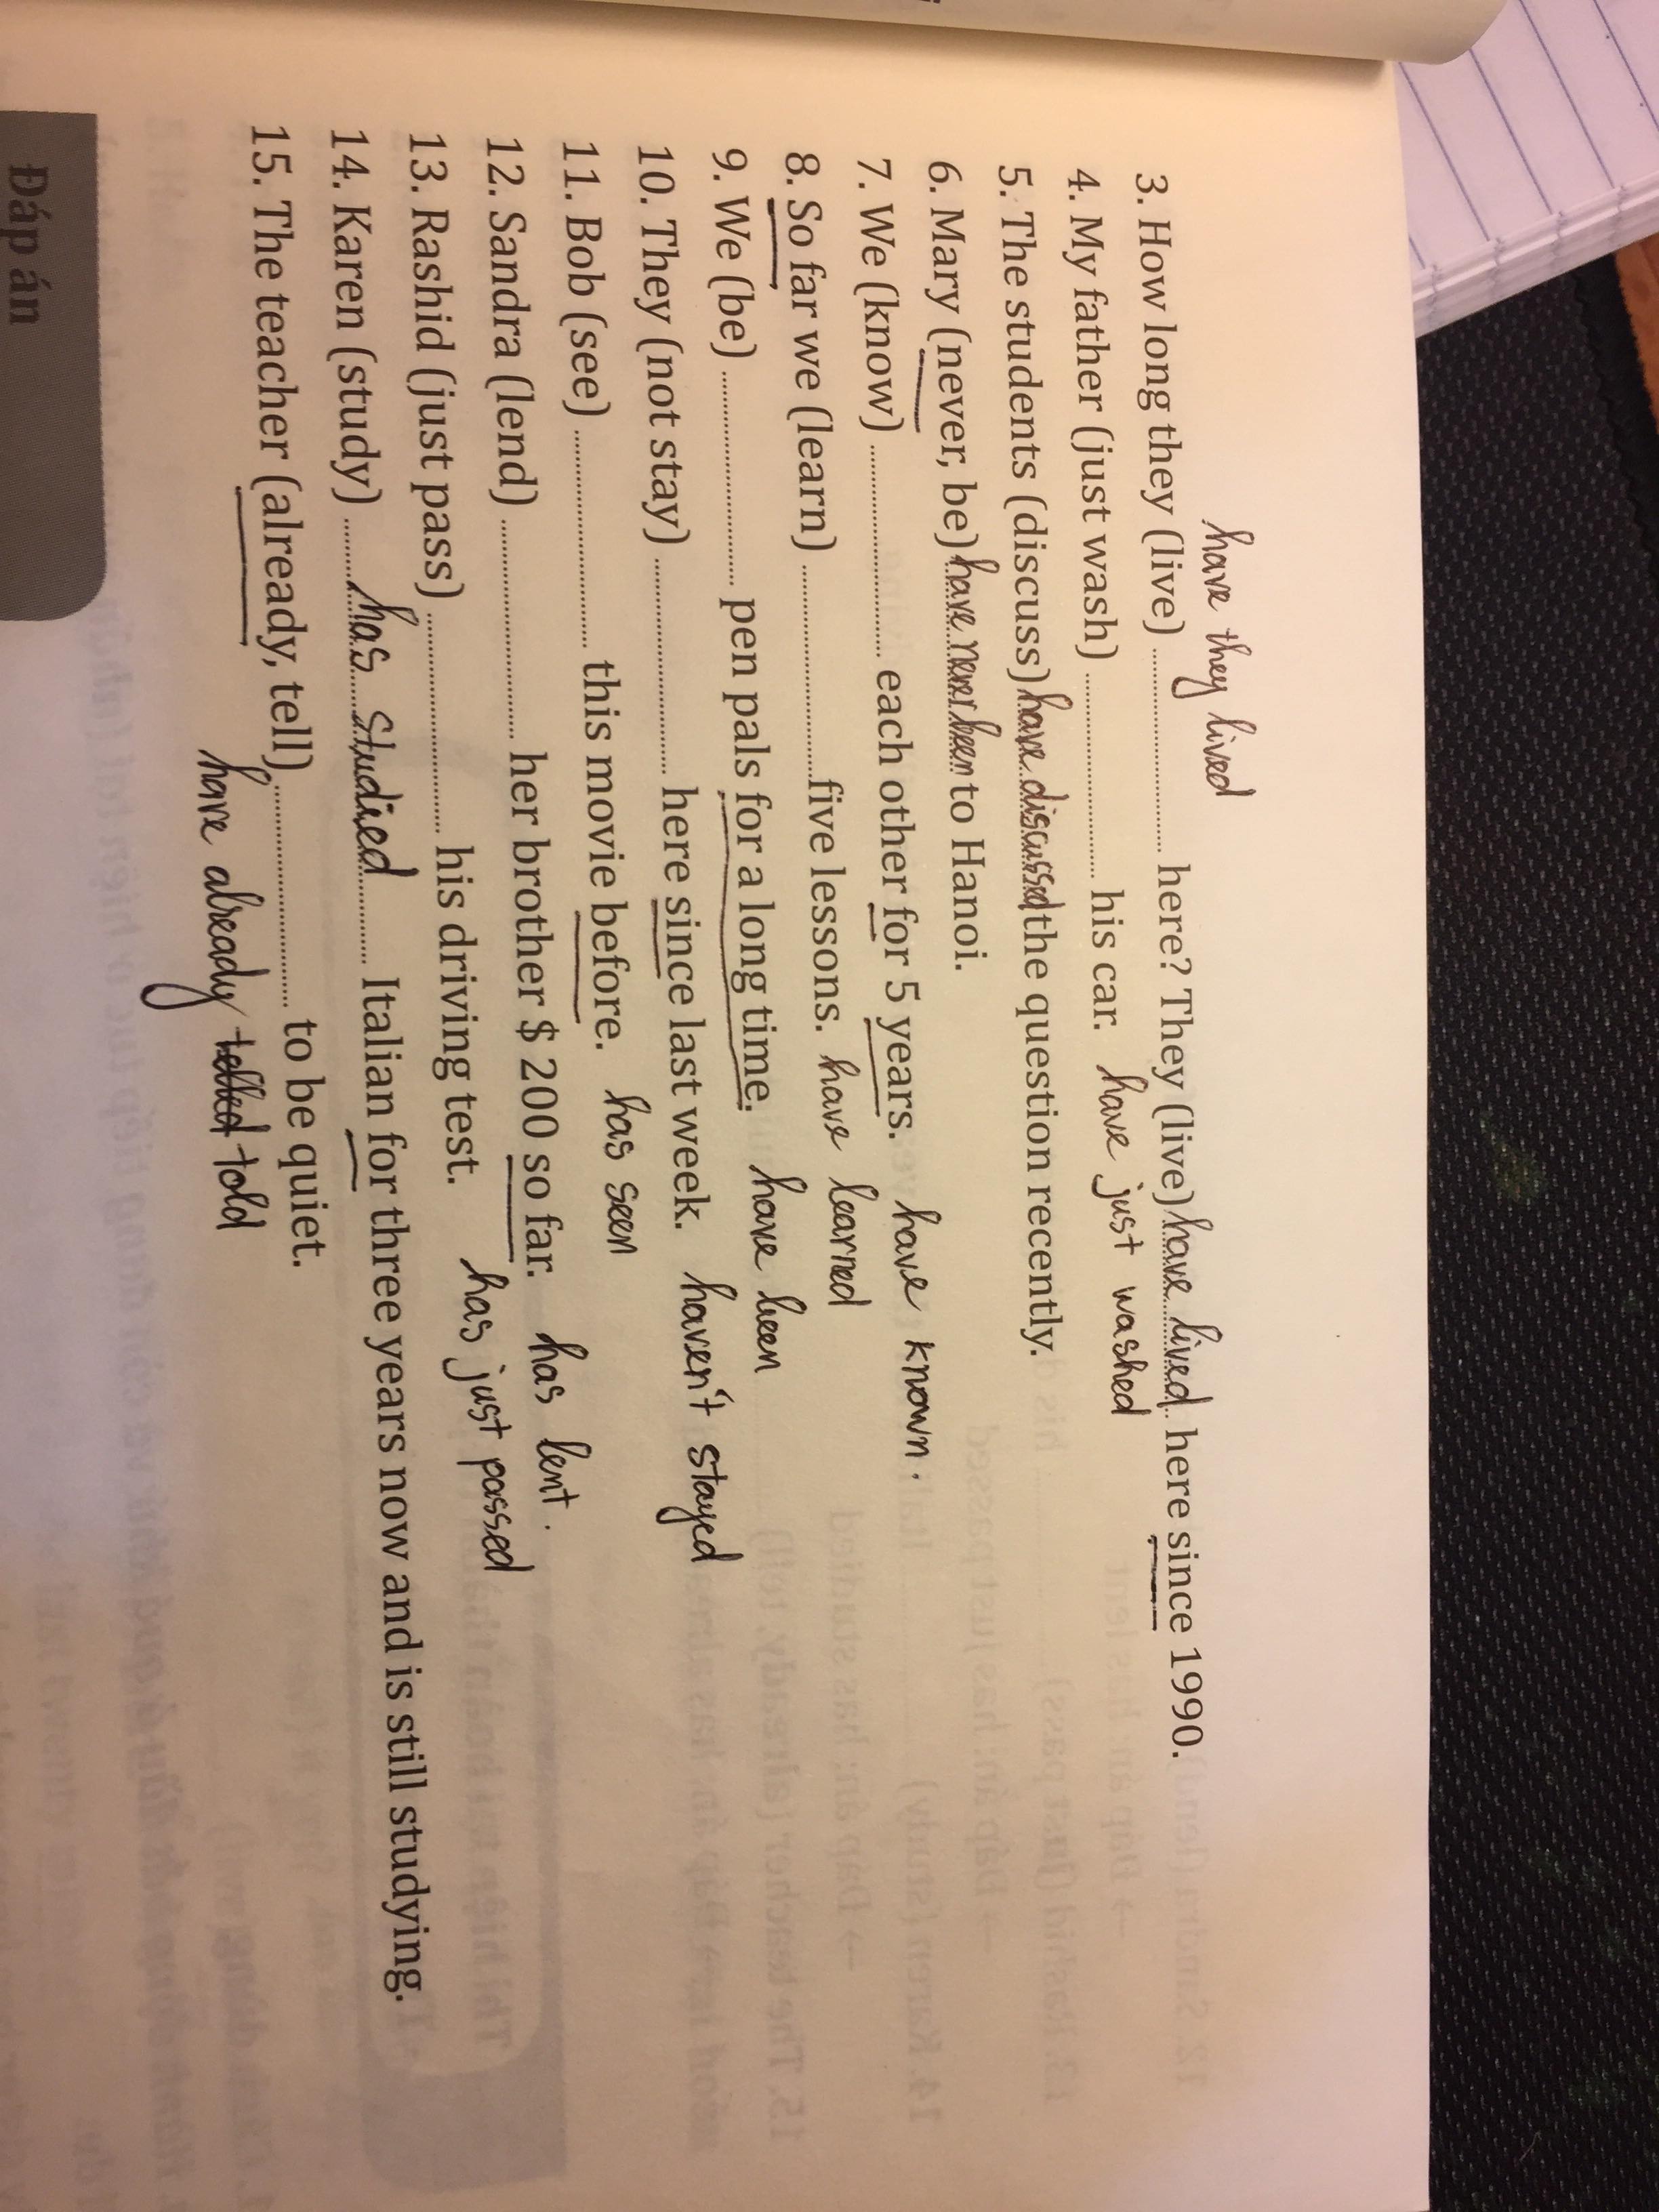 have they lived
3. How long they (live) .................... here? They (live) have lived here since 1990.
4. My father (just wash) .................... his car. have just washed
5. The students (discuss) have discussed the question recently.
6. Mary (never, be) have never been to Hanoi.
7. We (know) .................... each other for 5 years. have known.
8. So far we (learn) .................... five lessons. have learned
9. We (be) .................... pen pals for a long time. have been
10. They (not stay) .................... here since last week. haven't stayed
11. Bob (see) .................... this movie before. has seen
12. Sandra (lend) .................... her brother $ 200 so far. has lent.
13. Rashid (just pass) .................... his driving test. has just passed
14. Karen (study) ...... has studied ...... Italian for three years now and is still studying.
15. The teacher (already, tell) .................... to be quiet.
have already telled told
Đáp án